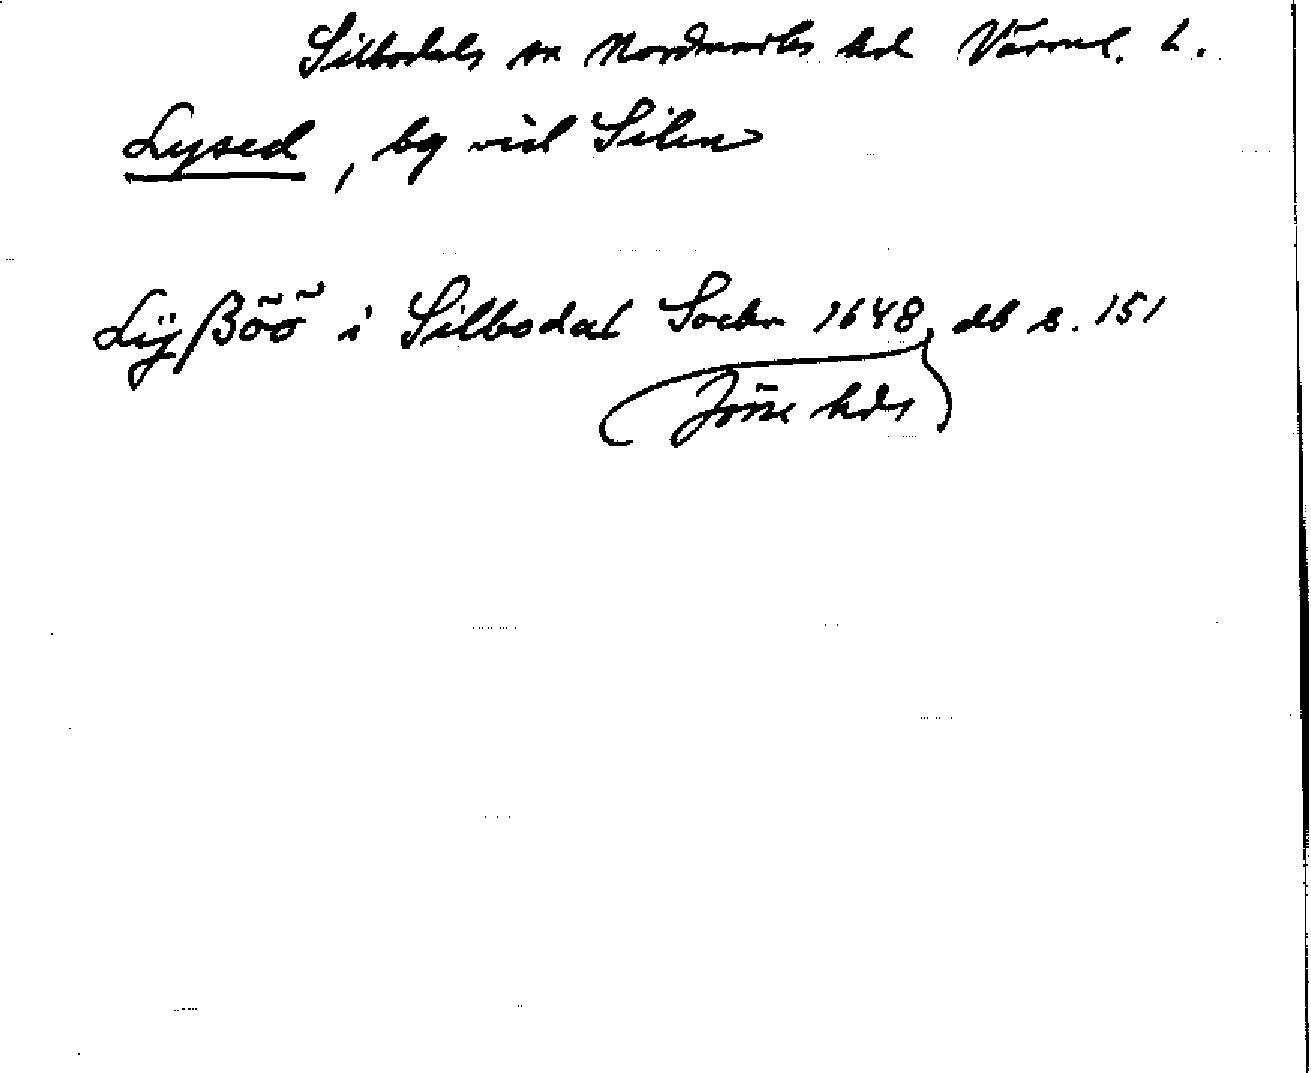 Silbodals sn Nordmarks hd Värml. L.
Lysed, bg vid Silen
Lÿßöö i Silbodal Sockn 1648, db s. 151
(Jösse hds)